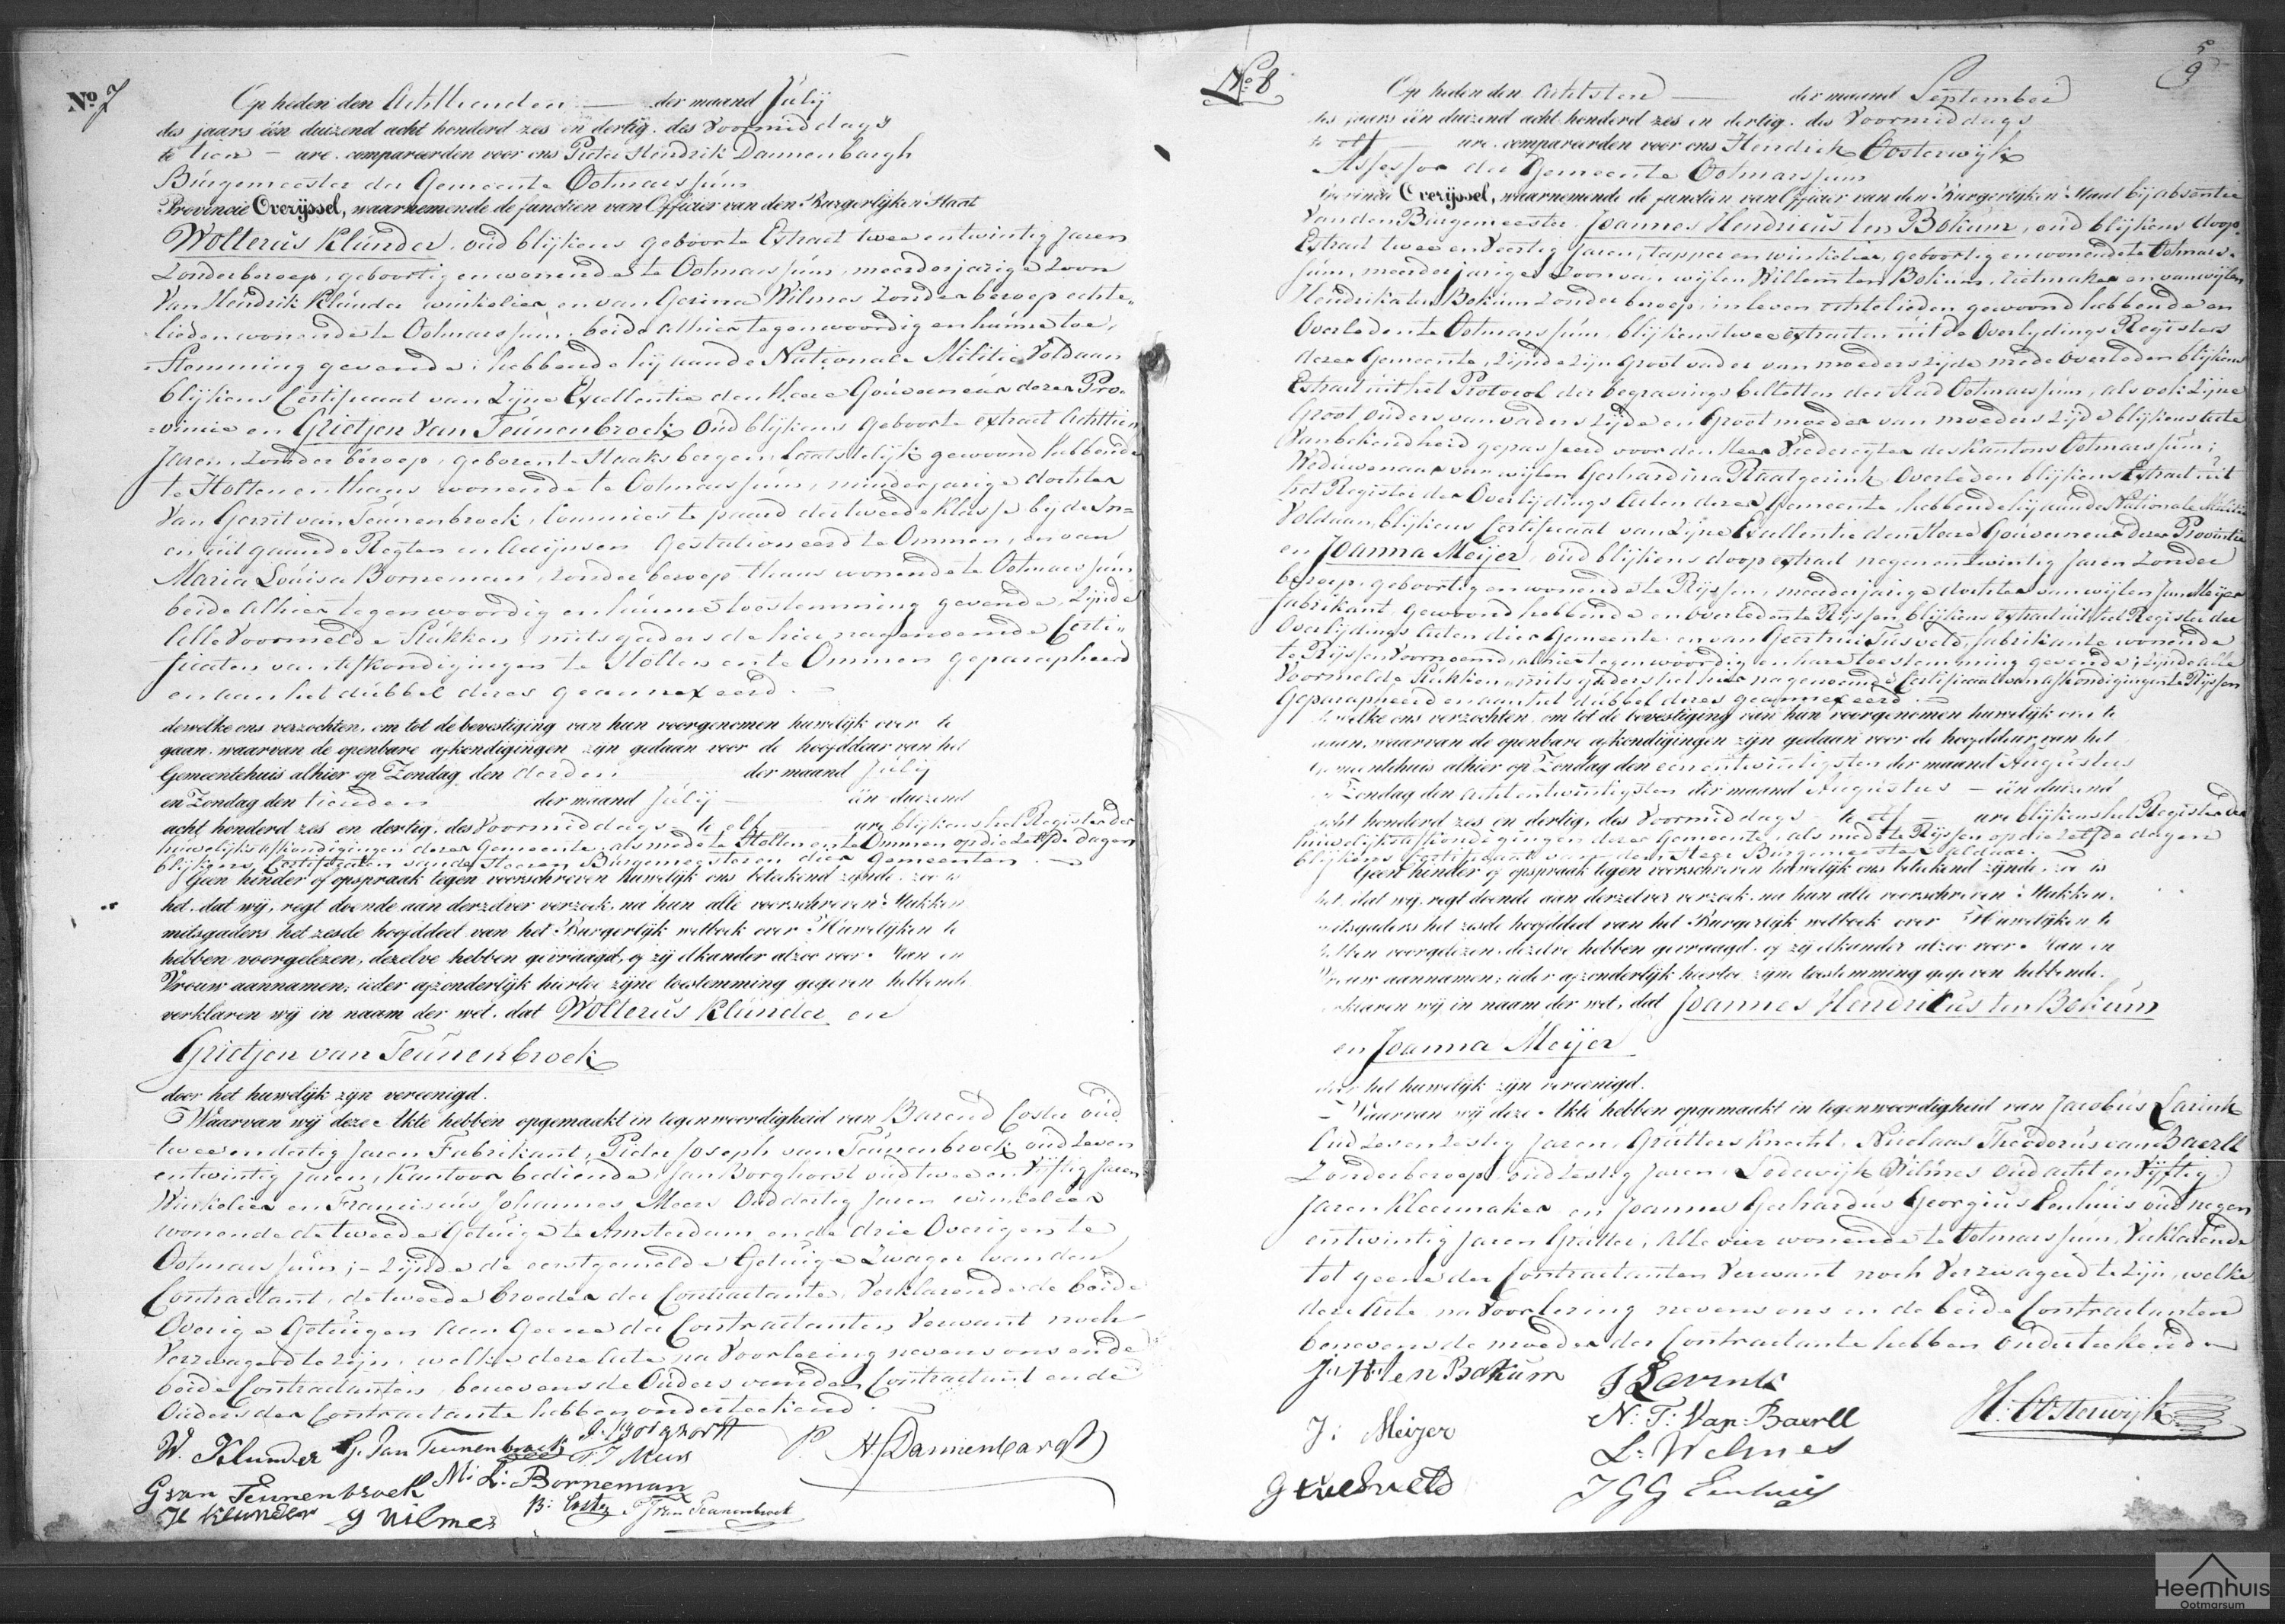 No 7
Op heden den Achttienden — der maand Julij
des jaars één duizend acht honderd zes en dertig, des Voormiddags
te tien — ure, compareerden voor ons Pieter Hendrik Dannenbargh
Burgemeester der Gemeente Ootmarssum
Provincie Overijssel, waarnemende de functien van Officier van den Burgerlijken Staat
Wolterus Klunder, oud blijkens geboorte Extract twee en twintig Jaren
Zonder beroep, geboortig en wonende te Ootmarssum, meerderjarige Zoon
Van Hendrik Klunder winkelier en van Gerina Wilmes Zonder beroep echte-
lieden wonende te Ootmarssum, beide alhier tegenwoordig en hunne toe-
stemming gevende; hebbende hij aan de Nationale Militie Voldaan
blijkens Certificaat van Zijne Excellentie den Heere Gouverneur dezer Pro-
vincie en Grietjen van Teunenbroek, oud blijkens geboorte extract Achttien
Jaren, Zonder beroep, geboren te Haaksbergen, laatstelijk gewoond hebbende
te Holten en thans wonende te Ootmarssum, minderjarige dochter
Van Gerrit van Teunenbroek, Commies te paard der tweede Klasse bij de In-
en uitgaande Regten en Accijnsen gestationeerd te Ommen, en van
Maria Louisa Borneman, zonder beroep thans wonende te Ootmarssum
beide alhier tegenwoordig en hunne toestemming gevende, Zijnde
Alle Voormelde Stukken, mitsgaders de hier nagenoemde Certi-
ficaten van Afkondigingen te Holten en te Ommen geparapheerd
en aan het dubbel dezes geannexeerd. —
dewelke ons verzochten, om tot de bevestiging van hun voorgenomen huwelijk over te
gaan, waarvan de openbare afkondigingen zijn gedaan voor de hoofddeur van het
Gemeentehuis alhier op Zondag den derden der maand Julij
en Zondag den tienden der maand Julij — één duizend
acht honderd zes en dertig, des Voormiddags te elf — ure blijkens het Register der
huwelijks afkondigingen dezer Gemeente, als mede te Holten en te Ommen op die zelfde dagen
blijkens Certificaten van de Heeren Burgemeesteren dier Gemeenten. —
Geen hinder of opspraak tegen voorschreven huwelijk ons bekend zijnde, zoo is
het, dat wij, regt doende aan derzelver verzoek, na hun alle voorschreven Stukken,
mitsgaders het zesde hoofddeel van het Burgerlijk wetboek over Huwelijken te
hebben voorgelezen, dezelve hebben gevraagd, of zij elkander alzoo voor Man en
Vrouw aannamen; ieder afzonderlijk hiertoe zijne toestemming gegeven hebbende,
verklaren wij in naam der wet, dat Wolterus Klunder en
Grietjen van Teunenbroek
door het huwelijk zijn vereenigd.
Waarvan wij deze Akte hebben opgemaakt in tegenwoordigheid van Barend Coster oud
twee en dertig Jaren Fabrikant, Pieter Joseph van Teunenbroek oud Zeven
en twintig Jaren, Kantoor bediende, Jan Borghorst oud twee en Vijftig Jaren
Winkelier en Franciscus Johannes Meors Oud dertig Jaren winkelier
wonende de tweede Getuige te Amsterdam en de drie Overigen te
Ootmarssum; — Zijnde de eerstgemelde Getuige Zwager van den
Contractant, de tweede broeder der Contractante, Verklarende de beide
Overige Getuigen aan geene der Contractanten Verwant noch
Verzwagerd te zijn, welke deze Acte na Voorlezing nevens ons en de
beide Contractanten, benevens de Ouders van den Contractant en de
Ouders der Contractante hebben onderteekend. —
W. Klunder G. Van Teunenbroek J. Borghorst
F. J. Meors P. H. Dannenbargh
G van Teunenbroek M: L: Borneman
H Klunder G Wilmes B: Coster P J van Teunenbroek
5
9
No. 8
Op heden den Achtsten — der maand September
des jaars één duizend acht honderd zes en dertig, des Voormiddags
te elf — ure, compareerden voor ons Hendrik Oosterwijk
Assessor der Gemeente Ootmarssum
Provincie Overijssel, waarnemende de functien van Officier van den Burgerlijken Staat bij absentie
van den Burgemeester, Joannes Hendricus ten Bokum, oud blijkens doop
Extract twee en Veertig Jaren, tapper en winkelier, geboortig en wonende te Ootmars-
sum, meerderjarige Zoon van wijlen Willem ten Bokum, en van wijlen
Hendrika ten Bokum Zonder beroep, in leven echtelieden gewoond hebbende en
Overleden te Ootmarssum, blijkens twee extracten uit de Overlijdings Registers
dezer Gemeente, Zijnde Zijn Groot vader van moeders zijde mede Overleden blijkens
Extract uit het Protocol der begravings billetten der Stad Ootmarssum, als ook Zijne
Groot Ouders van vaders Zijde en Groot moeder van moeders Zijde blijkens Acte
Van bekendheid gepasseerd voor den Heer Vrederegter des Kantons Ootmarssum;
Weduwenaar van wijlen Gerhardina Raatgerink, Overleden blijkens Extract uit
het Register der Overlijdings Acten dezer Gemeente, hebbende hij aan de Nationale Militie
Voldaan, blijkens Certificaat van Zijne Excellentie den Heere Gouverneur dezer Provintie
en Joanna Meijer, oud blijkens doop extract negen en twintig Jaren Zonder
beroep, geboortig en wonende te Rijssen, meerderjarige dochter van wijlen Jan Meijer
fabrikant, gewoond hebbende en overleden te Rijssen, blijkens extract uit het Register der
Overlijdings Acten dier Gemeente en van Geertrui Tusveld, fabrikante wonende
te Rijssen Voornoemd, alhier tegenwoordig en hare toestemming gevende; Zijnde alle
Voormelde Stukken, mitsgaders het hier nagenoemde Certificaat van afkondigingen te Rijssen
Geparapheerd en aan het dubbel dezes geannexeerd. —
dewelke ons verzochten, om tot de bevestiging van hun voorgenomen huwelijk over te
gaan, waarvan de openbare afkondigingen zijn gedaan voor de hoofddeur van het
Gemeentehuis alhier op Zondag den een en twintigsten der maand Augustus
en Zondag den acht en twintigsten der maand Augustus — één duizend
acht honderd zes en dertig, des Voormiddags te elf — ure blijkens het Register der
huwelijks afkondigingen dezer Gemeente, als mede te Rijssen op die zelfde dagen
blijkens Certificaat van den Heer Burgemeester aldaar. —
Geen hinder of opspraak tegen voorschreven huwelijk ons bekend zijnde, zoo is
het, dat wij, regt doende aan derzelver verzoek, na hun alle voorschreven Stukken,
mitsgaders het zesde hoofddeel van het Burgerlijk wetboek over Huwelijken te
hebben voorgelezen, dezelve hebben gevraagd, of zij elkander alzoo voor Man en
Vrouw aannamen; ieder afzonderlijk hiertoe zijne toestemming gegeven hebbende,
verklaren wij in naam der wet, dat Joannes Hendricus ten Bokum
en Joanna Meijer
door het huwelijk zijn vereenigd.
Waarvan wij deze Akte hebben opgemaakt in tegenwoordigheid van Jacobus Larink
Oud Zeven Zestig Jaren, Grutters Knecht, Nicolaas Theodorus van Baerll
Zonder beroep oud Zestig Jaren, Lodewijk Wilmes Oud acht en Vijftig
Jaren Kleermaker en Joannes Gerhardus Georgius Eenhuis oud negen
en twintig Jaren Grutter, alle vier wonende te Ootmarssum, Verklarende
tot geene der Contractanten Verwant noch Verzwagerd te Zijn, welke
deze Acte na Voorlezing nevens ons en de beide Contractanten
benevens de moeder der Contractante hebben Onderteekend —
J: H: ten Bokum J Larink
J: Meijer N: T: Van Baerll H: Oosterwijk
L: Wilmes
G tusveld J G G Eenhuis
Heemhuis
Ootmarsum